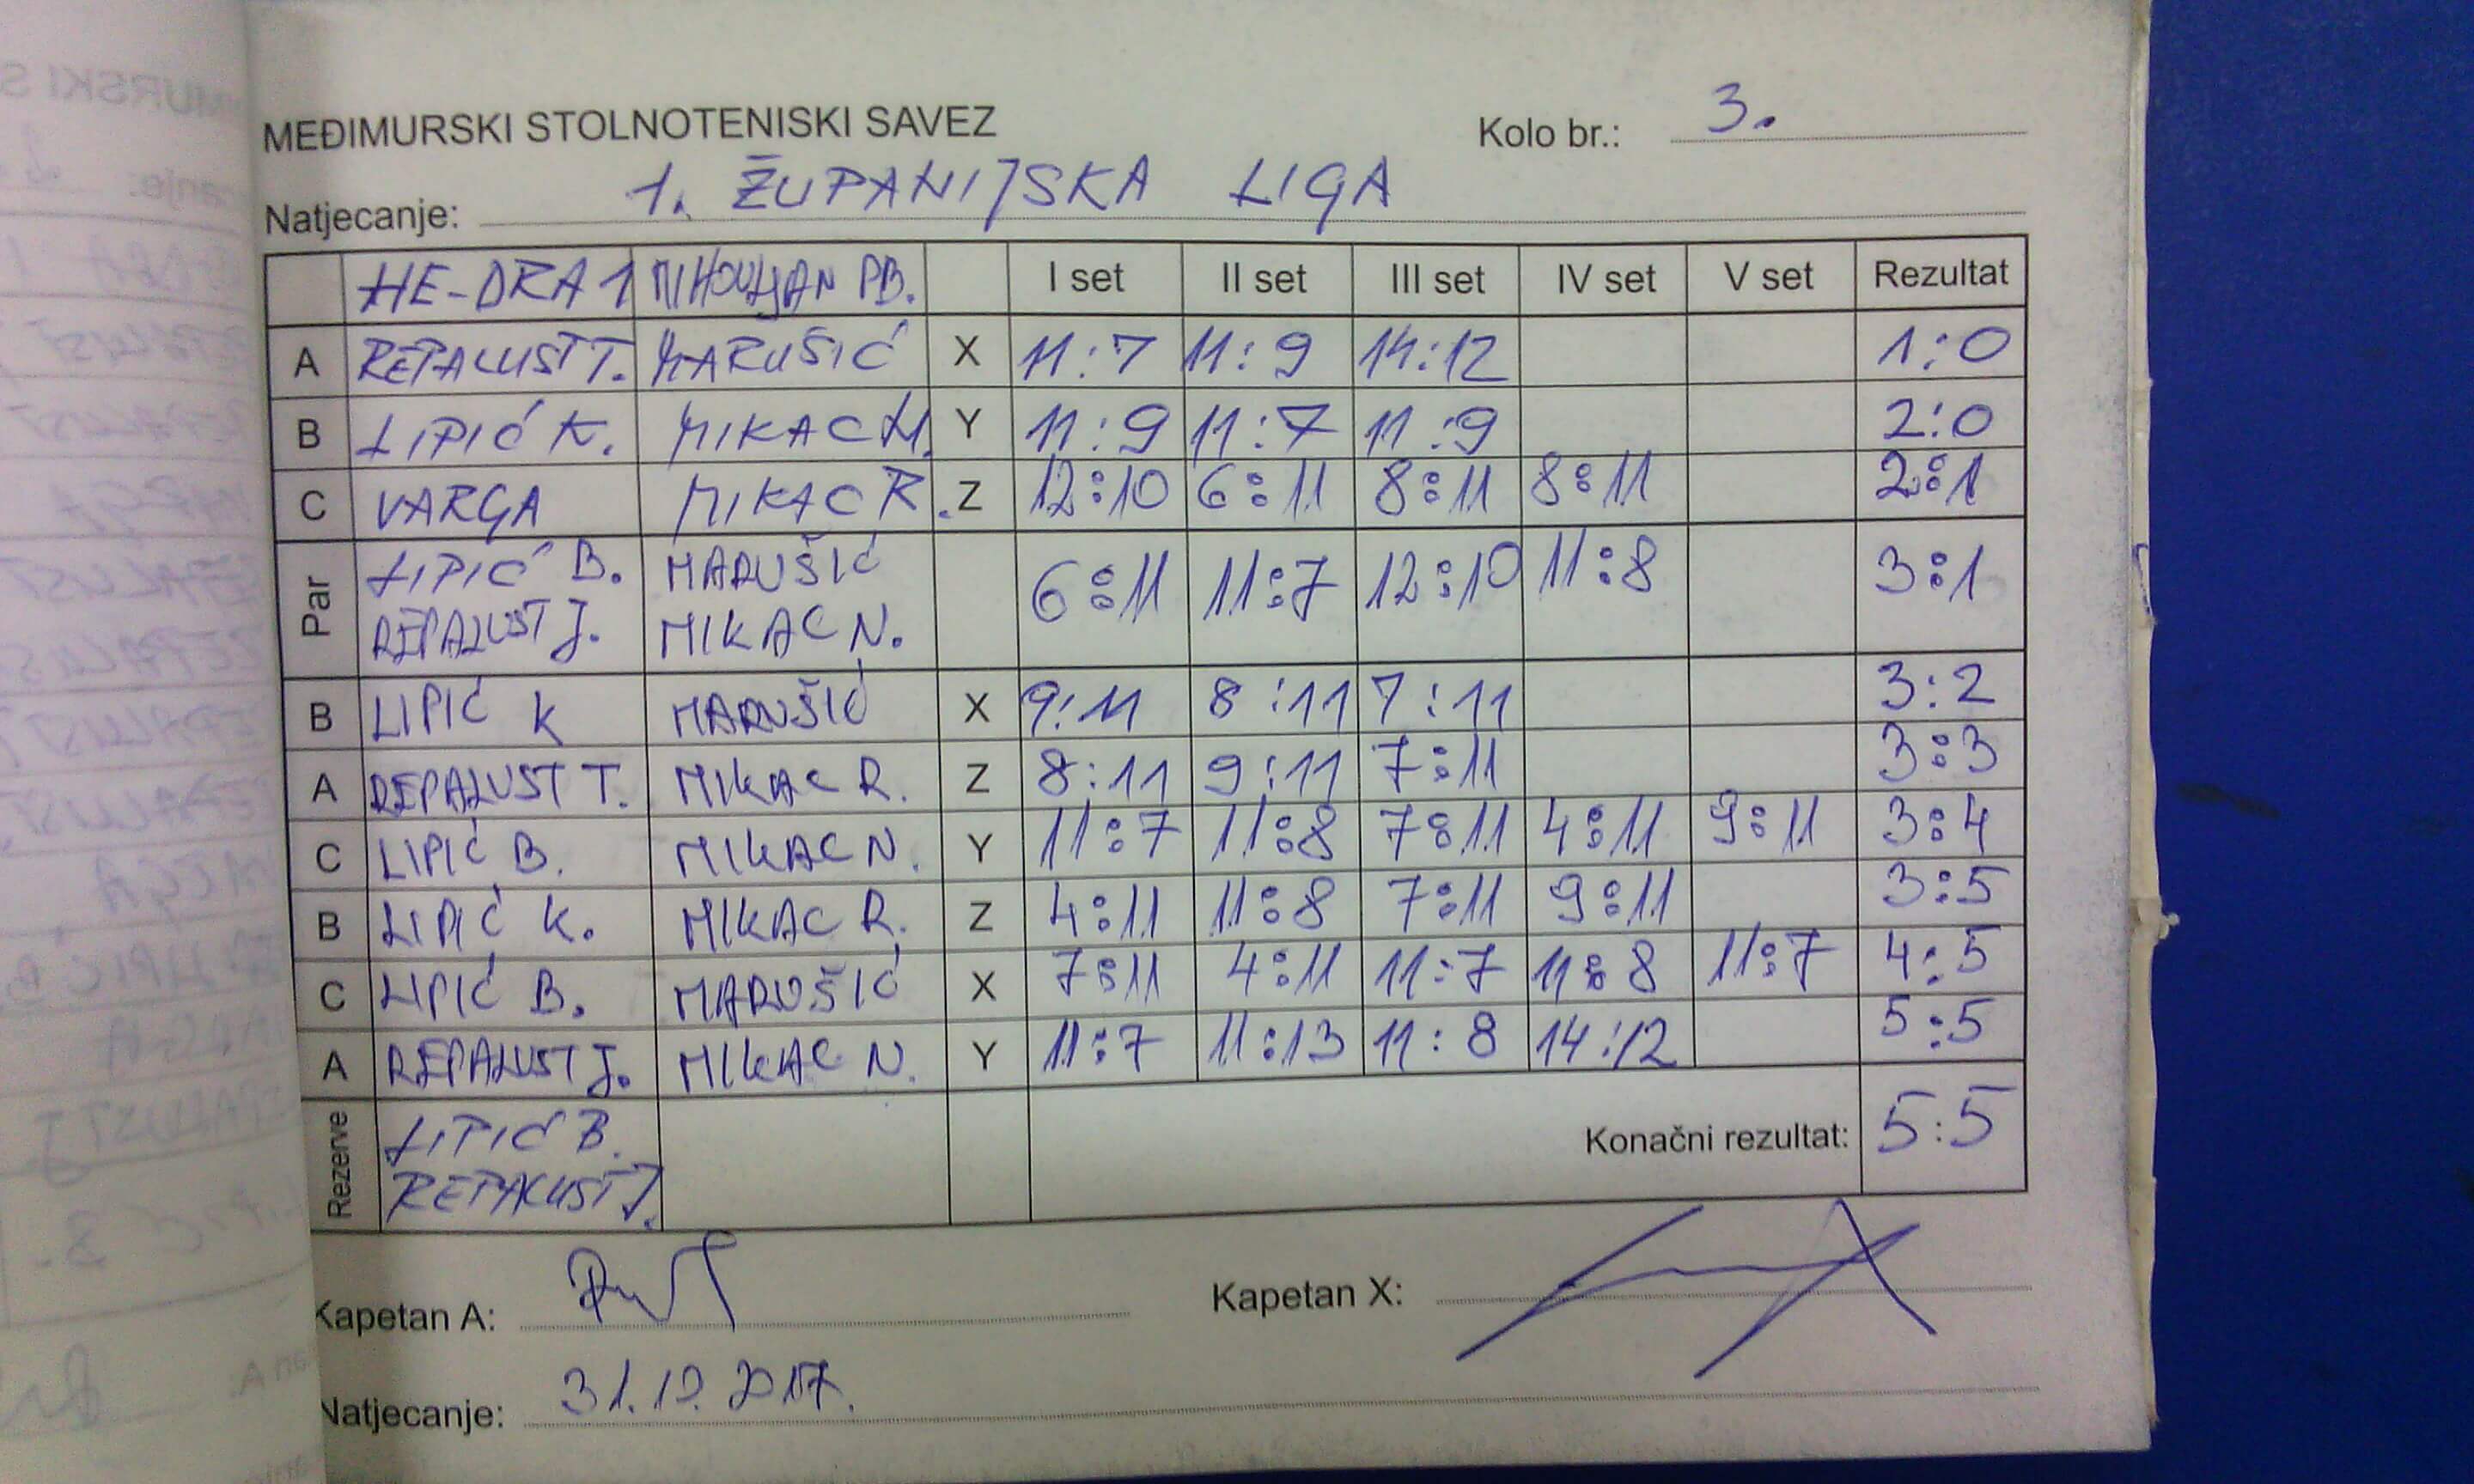 MEĐIMURSKI STOLNOTENISKI SAVEZ Kolo br.: 3.
Natjecanje: 1. ŽUPANIJSKA LIGA
HE-DRA 1 MIHOVLJAN PB. I set II set III set IV set V set Rezultat
A REPALUST T. MARUŠIĆ X 11:7 11:9 14:12 1:0
B LIPIĆ K. MIKAC Y 11:9 11:7 11:9 2:0
C VARGA MIKAC R. Z 12:10 6:11 8:11 8:11 2:1
Par LIPIĆ B. MARUŠIĆ 6:11 11:7 12:10 11:8 3:1
REPALUST J. MIKAC N.
B LIPIĆ K MARUŠIĆ X 9:11 8:11 7:11 3:2
A REPALUST T. MIKAC R. Z 8:11 9:11 7:11 3:3
C LIPIĆ B. MIKAC N. Y 11:7 11:8 7:11 4:11 9:11 3:4
B LIPIĆ K. MIKAC R. Z 4:11 11:8 7:11 9:11 3:5
C LIPIĆ B. MARUŠIĆ X 7:11 4:11 11:7 11:8 11:7 4:5
A REPALUST J. MIKAC N. Y 11:7 11:13 11:8 14:12 5:5
Rezerve LIPIĆ B. Konačni rezultat: 5:5
REPALUST J.
Kapetan A: Kapetan X:
Natjecanje: 31.10.2017.